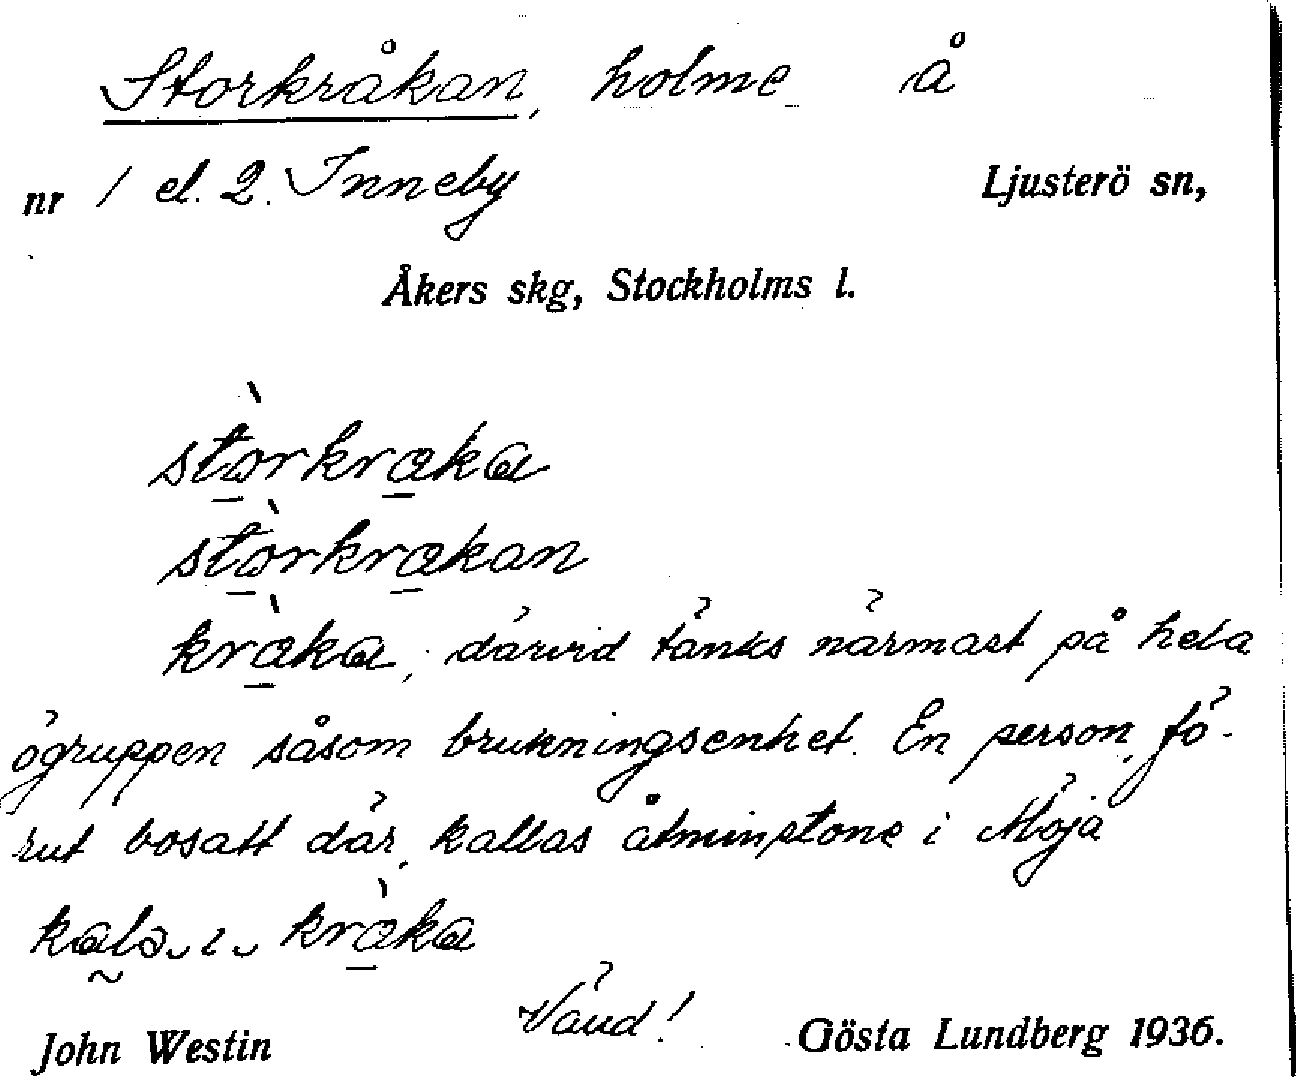 Storkråkan, holme å
nr 1 el. 2. Inneby Ljusterö sn,
Åkers skg, Stockholms l.
stòrkraka
stòrkrakan
kràka, därvid tänks närmast på hela
ögruppen såsom brukningsenhet. En person, fö-
rut bosatt där, kallas åtminstone i Möja
kala i kràka
Vänd!
John Westin Gösta Lundberg 1936.